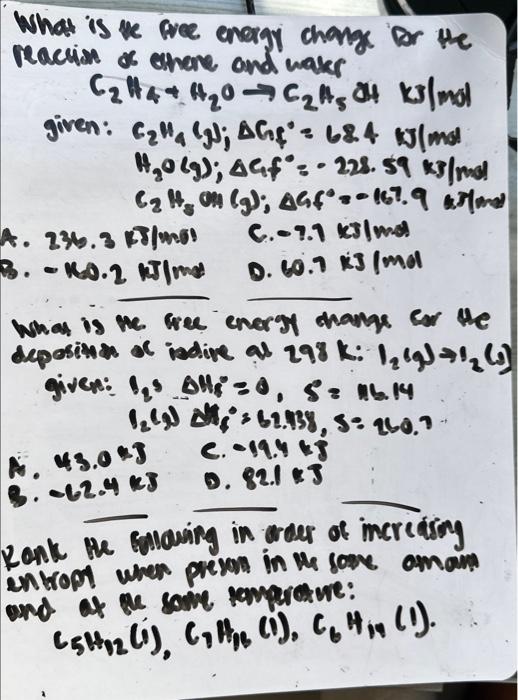 What is the free energy change for the
reaction of ethene and water
C₂H₄ + H₂O → C₂H₅OH kJ/mol
given: C₂H₄ (g); ΔGf° = 68.4 kJ/mol
H₂O (g); ΔGf° = - 228.59 kJ/mol
C₂H₅OH (g); ΔGf° = -167.9 kJ/mol
A. 236.3 kJ/mol C. -7.7 kJ/mol
B. - 160.2 kJ/mol D. 60.7 kJ/mol
What is the free energy change for the
deposition of iodine at 298 k: I₂(g) → I₂(s)
given: I₂s ΔHf° = 0, S° = 116.14
I₂(g) ΔHf° = 62.438, S = 260.7
A. 43.0 kJ C. -19.4 kJ
B. -62.4 kJ D. 82.1 kJ
Rank the following in order of increasing
entropy when present in the same amount
and at the same temperature:
C₅H₁₂(l), C₇H₁₆(l), C₆H₁₄(l).